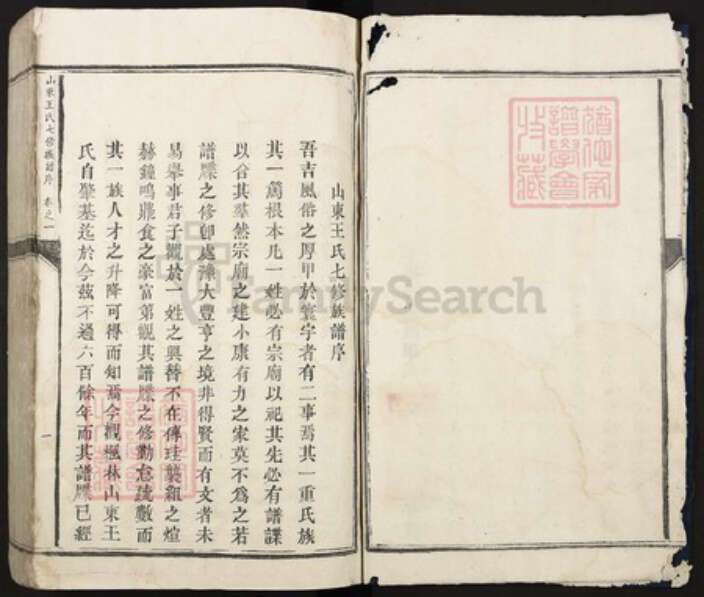 山東王氏七修族譜序
吾吉風俗之厚甲於寰宇者有二事焉其一重氏族
其一篤根本凡一姓必有宗廟以祀其先必有譜諜
以合其羣然宗廟之建小康有力之家莫不為之若
譜牒之修卽處豫大豐亨之境非得賢而有文者未
易舉事君子觀於一姓之興替不在傳珪襲組之煊
赫鐘鳴鼎食之豪富第觀其譜牒之修勤怠疏數而
其一族人才之升降可得而知焉今觀楓林山東王
氏自肇基迄於今茲不過六百餘年而其譜牒已經
山東王氏七修族譜序 卷之一
一
譜學會
收藏
FamilySearch